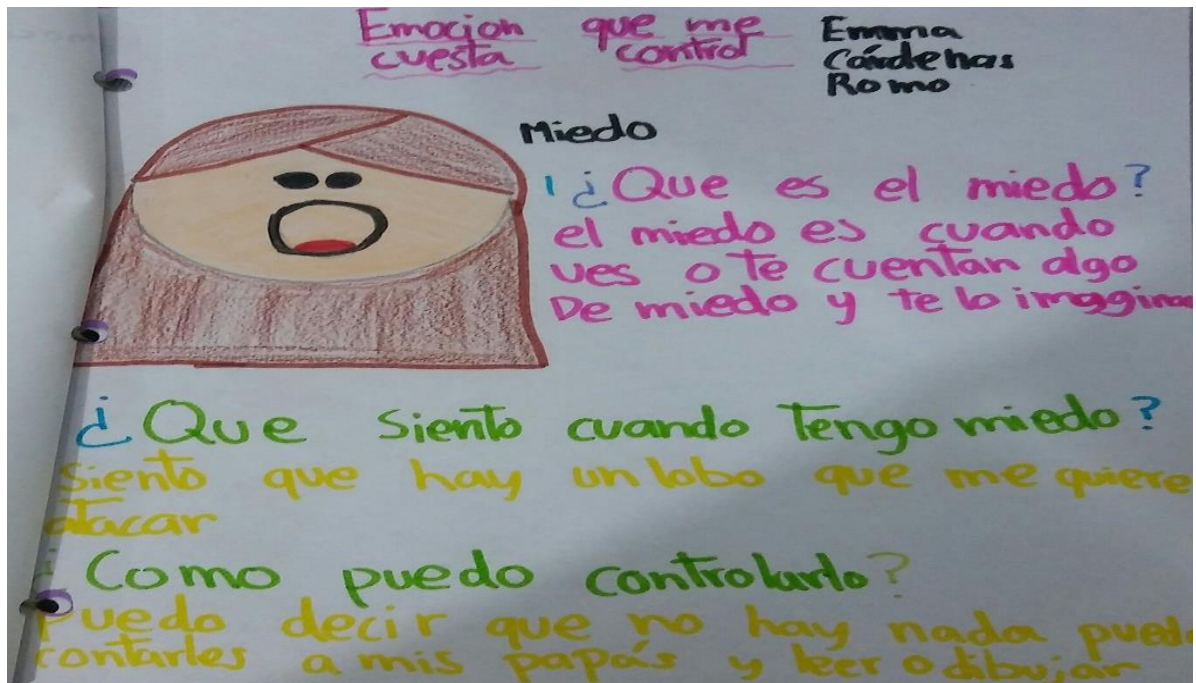 Emocion que me
cuesta control
Emma
Cárdenas
Romo
Miedo
1 ¿Que es el miedo?
el miedo es cuando
ves o te cuentan algo
De miedo y te lo imagina
¿Que siento cuando Tengo miedo?
Siento que hay un lobo que me quiere
atacar
¿Como puedo controlarlo?
Puedo decir que no hay nada puedo
contarles a mis papás y leer o dibujar